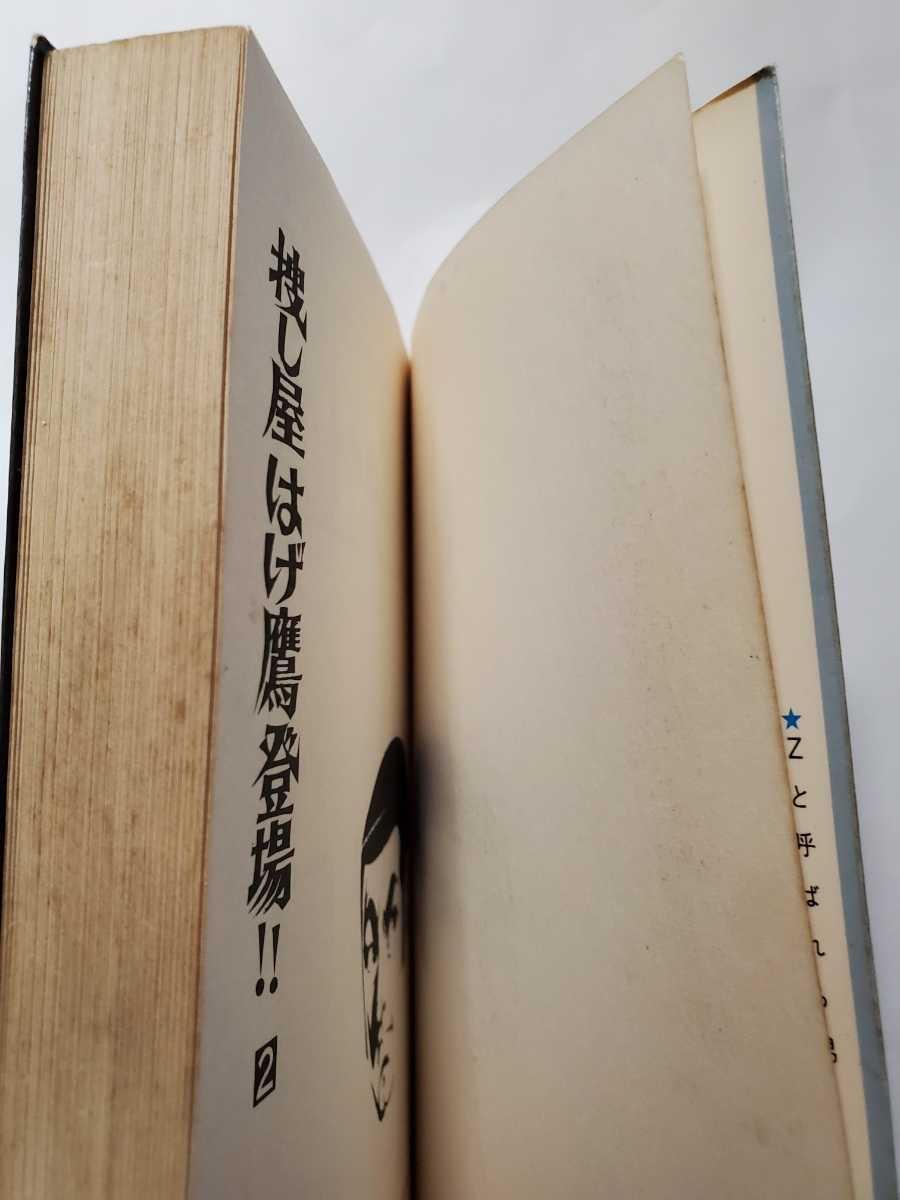 捜し屋はげ鷹登場!! 2
★Zと呼ばれ